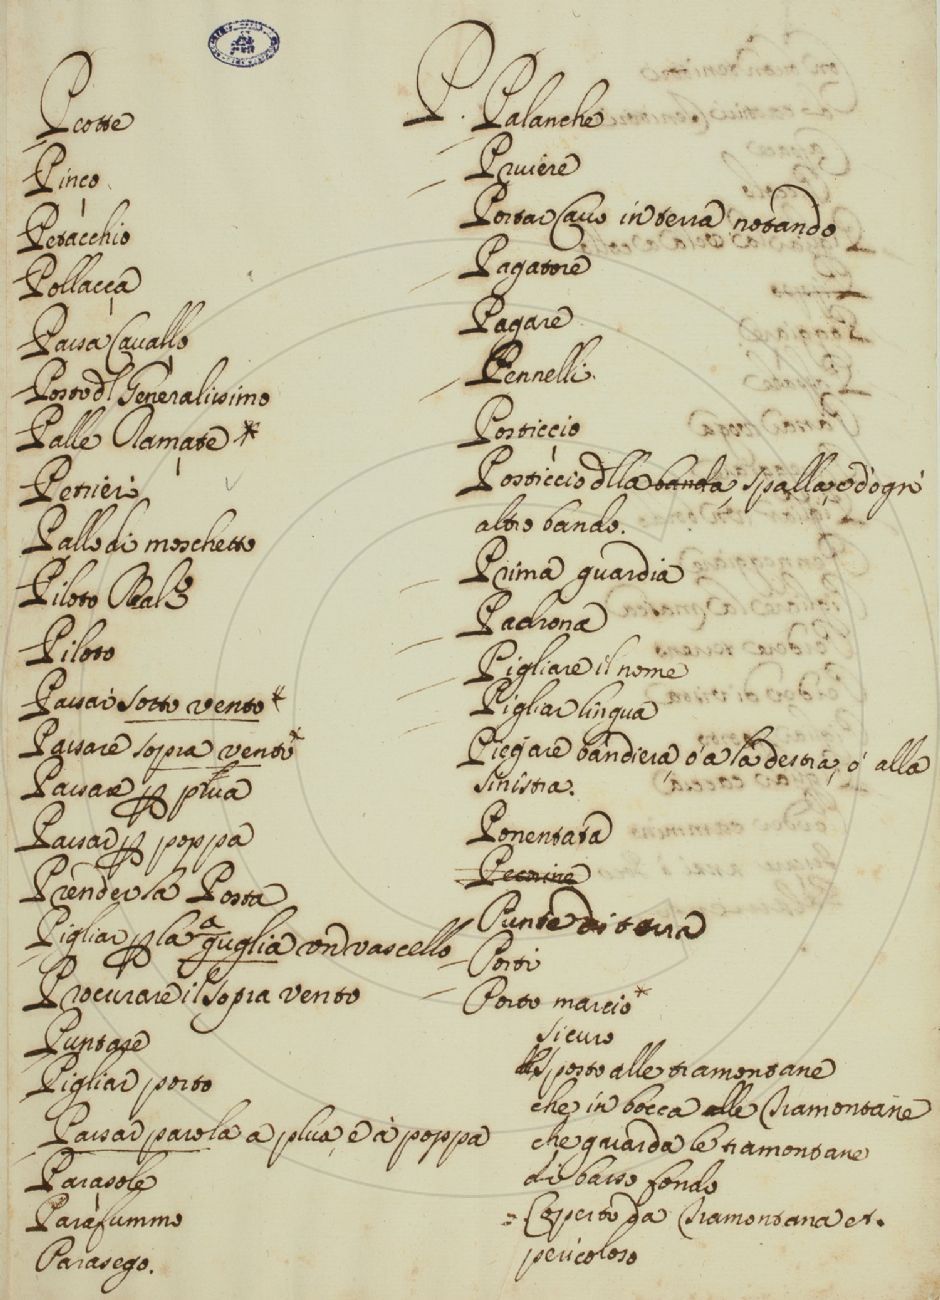 Pcotte
Pinco
Petacchio
Pollacca
Passa Cavallo
Posto dl Generalissimo
Palle Ramate *
Petrieri
Palle di moschetto
Piloto Real
Piloto
Passar sotto vento *
Passare sopra vento *
Passar p prua
Passar p poppa
Prender la Posta
Pigliar p la aguglia un vascello
Procurare il sopra vento
Puntare
Pigliar porto
Passar parola a prua, e à poppa
Parasole
Parafummo
Parasego.
P. Palanche
Pruiere
Portar Cavo in terra notando
Pagatore
Pagare
Pennelli.
Posticcio
Posticcio dlla banda, spalla, e d'ogni
altro bando.
Prima guardia
Padrona
Pigliare il nome
Pigliar lingua
Piegare bandiera, ò a la destra, ò alla
sinistra.
Ponentata
Punte di terra
Porti
Porto marcio *
sicuro
sposto alle tramontane
che in bocca alle Tramontane
che guarda le tramontane
di basso fondo
= Coperto da Tramontana et.
pericoloso